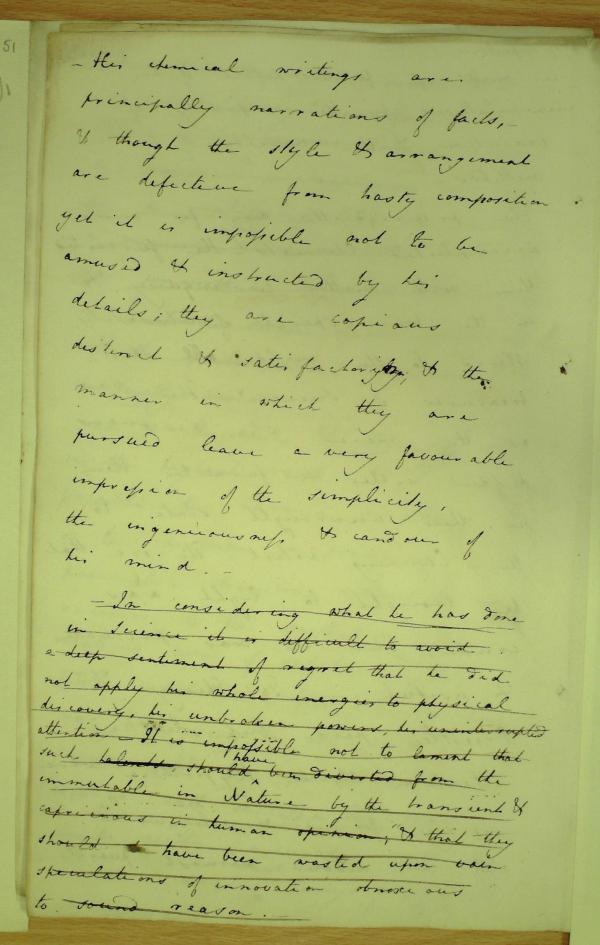 51
- His chemical writings are
principally narrations of facts, -
& though the style & arrangement
are defective from hasty composition
yet it is impossible not to be
amused & instructed by his
details; they are copious
distinct & satisfactory, & the
manner in which they are
pursued leave a very favourable
impression of the simplicity,
the ingeniousness & candour of
his mind. -
- In considering what he has done
in science it is difficult to avoid
a deep sentiment of regret that he did
not apply his whole energies to physical
discovery, his unbroken powers, his uninterrupted
attention. It is impossible not to lament that
such talents should have been diverted from the
immutable in Nature by the transient &
capricious in human opinion; & that they
should have been wasted upon vain
speculations of innovation obnoxious
to sound reason. -